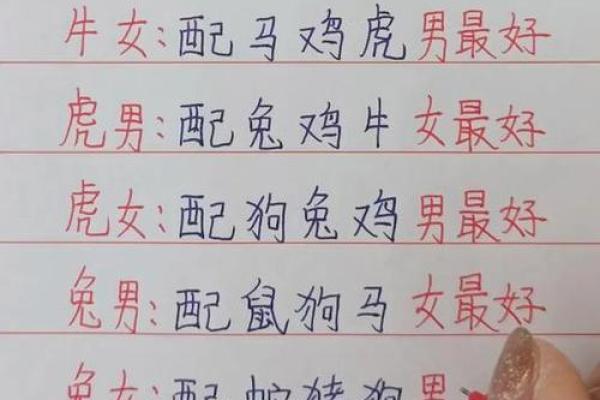 牛女:配马鸡虎男最好
虎男:配兔鸡牛女最好
虎女:配狗兔鸡男最好
兔男:配鼠狗马女最好
兔女:配蛇猪狗男